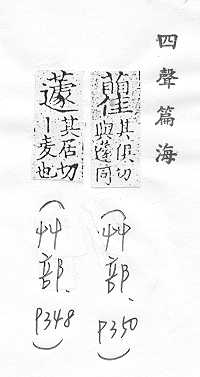 四聲篇海
其俱切
與蘧同
(艸部. P350)
蘧
其居切
丨麦也
(艸部. P348)